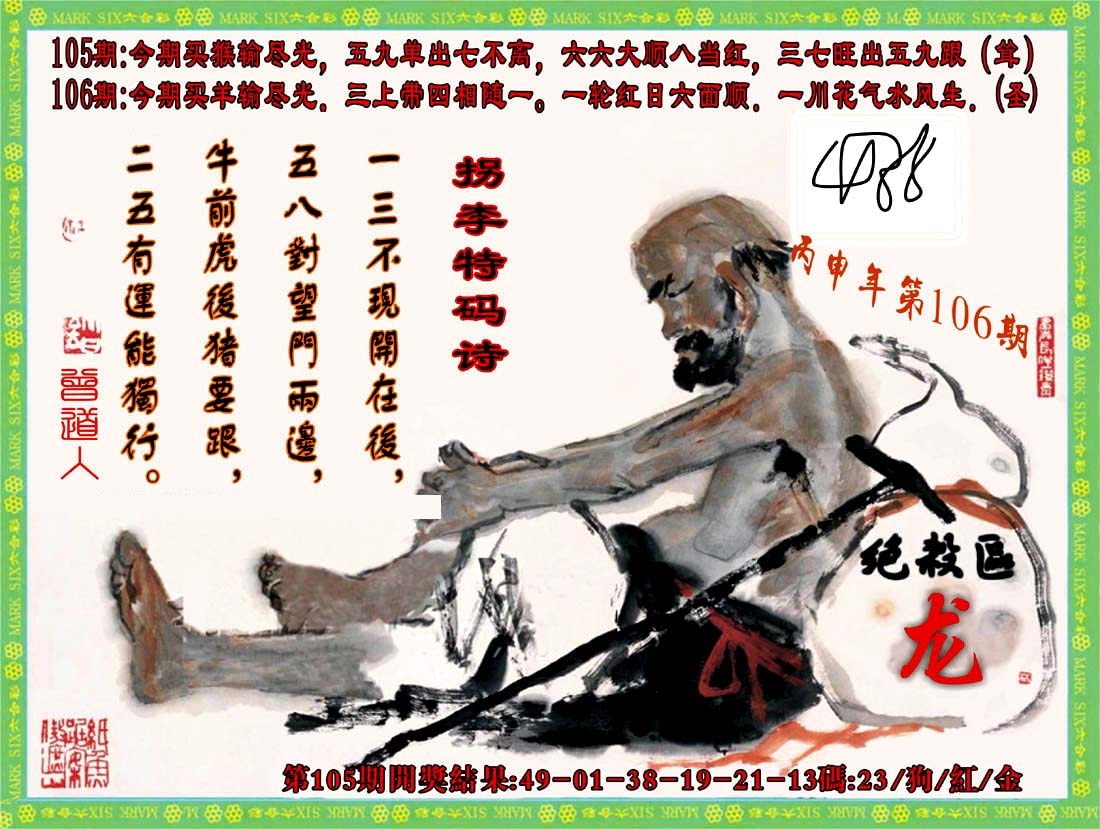 MARK SIX六合彩
105期:今期买猴输尽光，五九单出七不离，六六大顺八当红，三七旺出五九跟（耸）
106期:今期买羊输尽光．三上带四相随一。一轮红日六面顺．一川花气水风生．(圣)
丙申年第106期
拐李特码诗
一三不現開在後，
五八對望門兩邊，
牛前虎後猪要跟，
二五有運能獨行。
曾道人
绝殺區
龙
第105期開獎結果:49-01-38-19-21-13碼:23/狗/紅/金